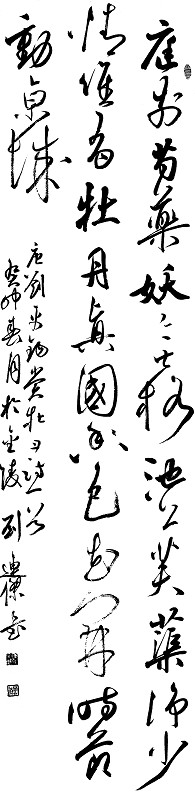 庭前芍藥妖無格池上芙蕖淨少
情唯有牡丹真國色花開時節
動京城
唐劉禹錫賞牡丹詩一首
癸卯春月於金陵 劉